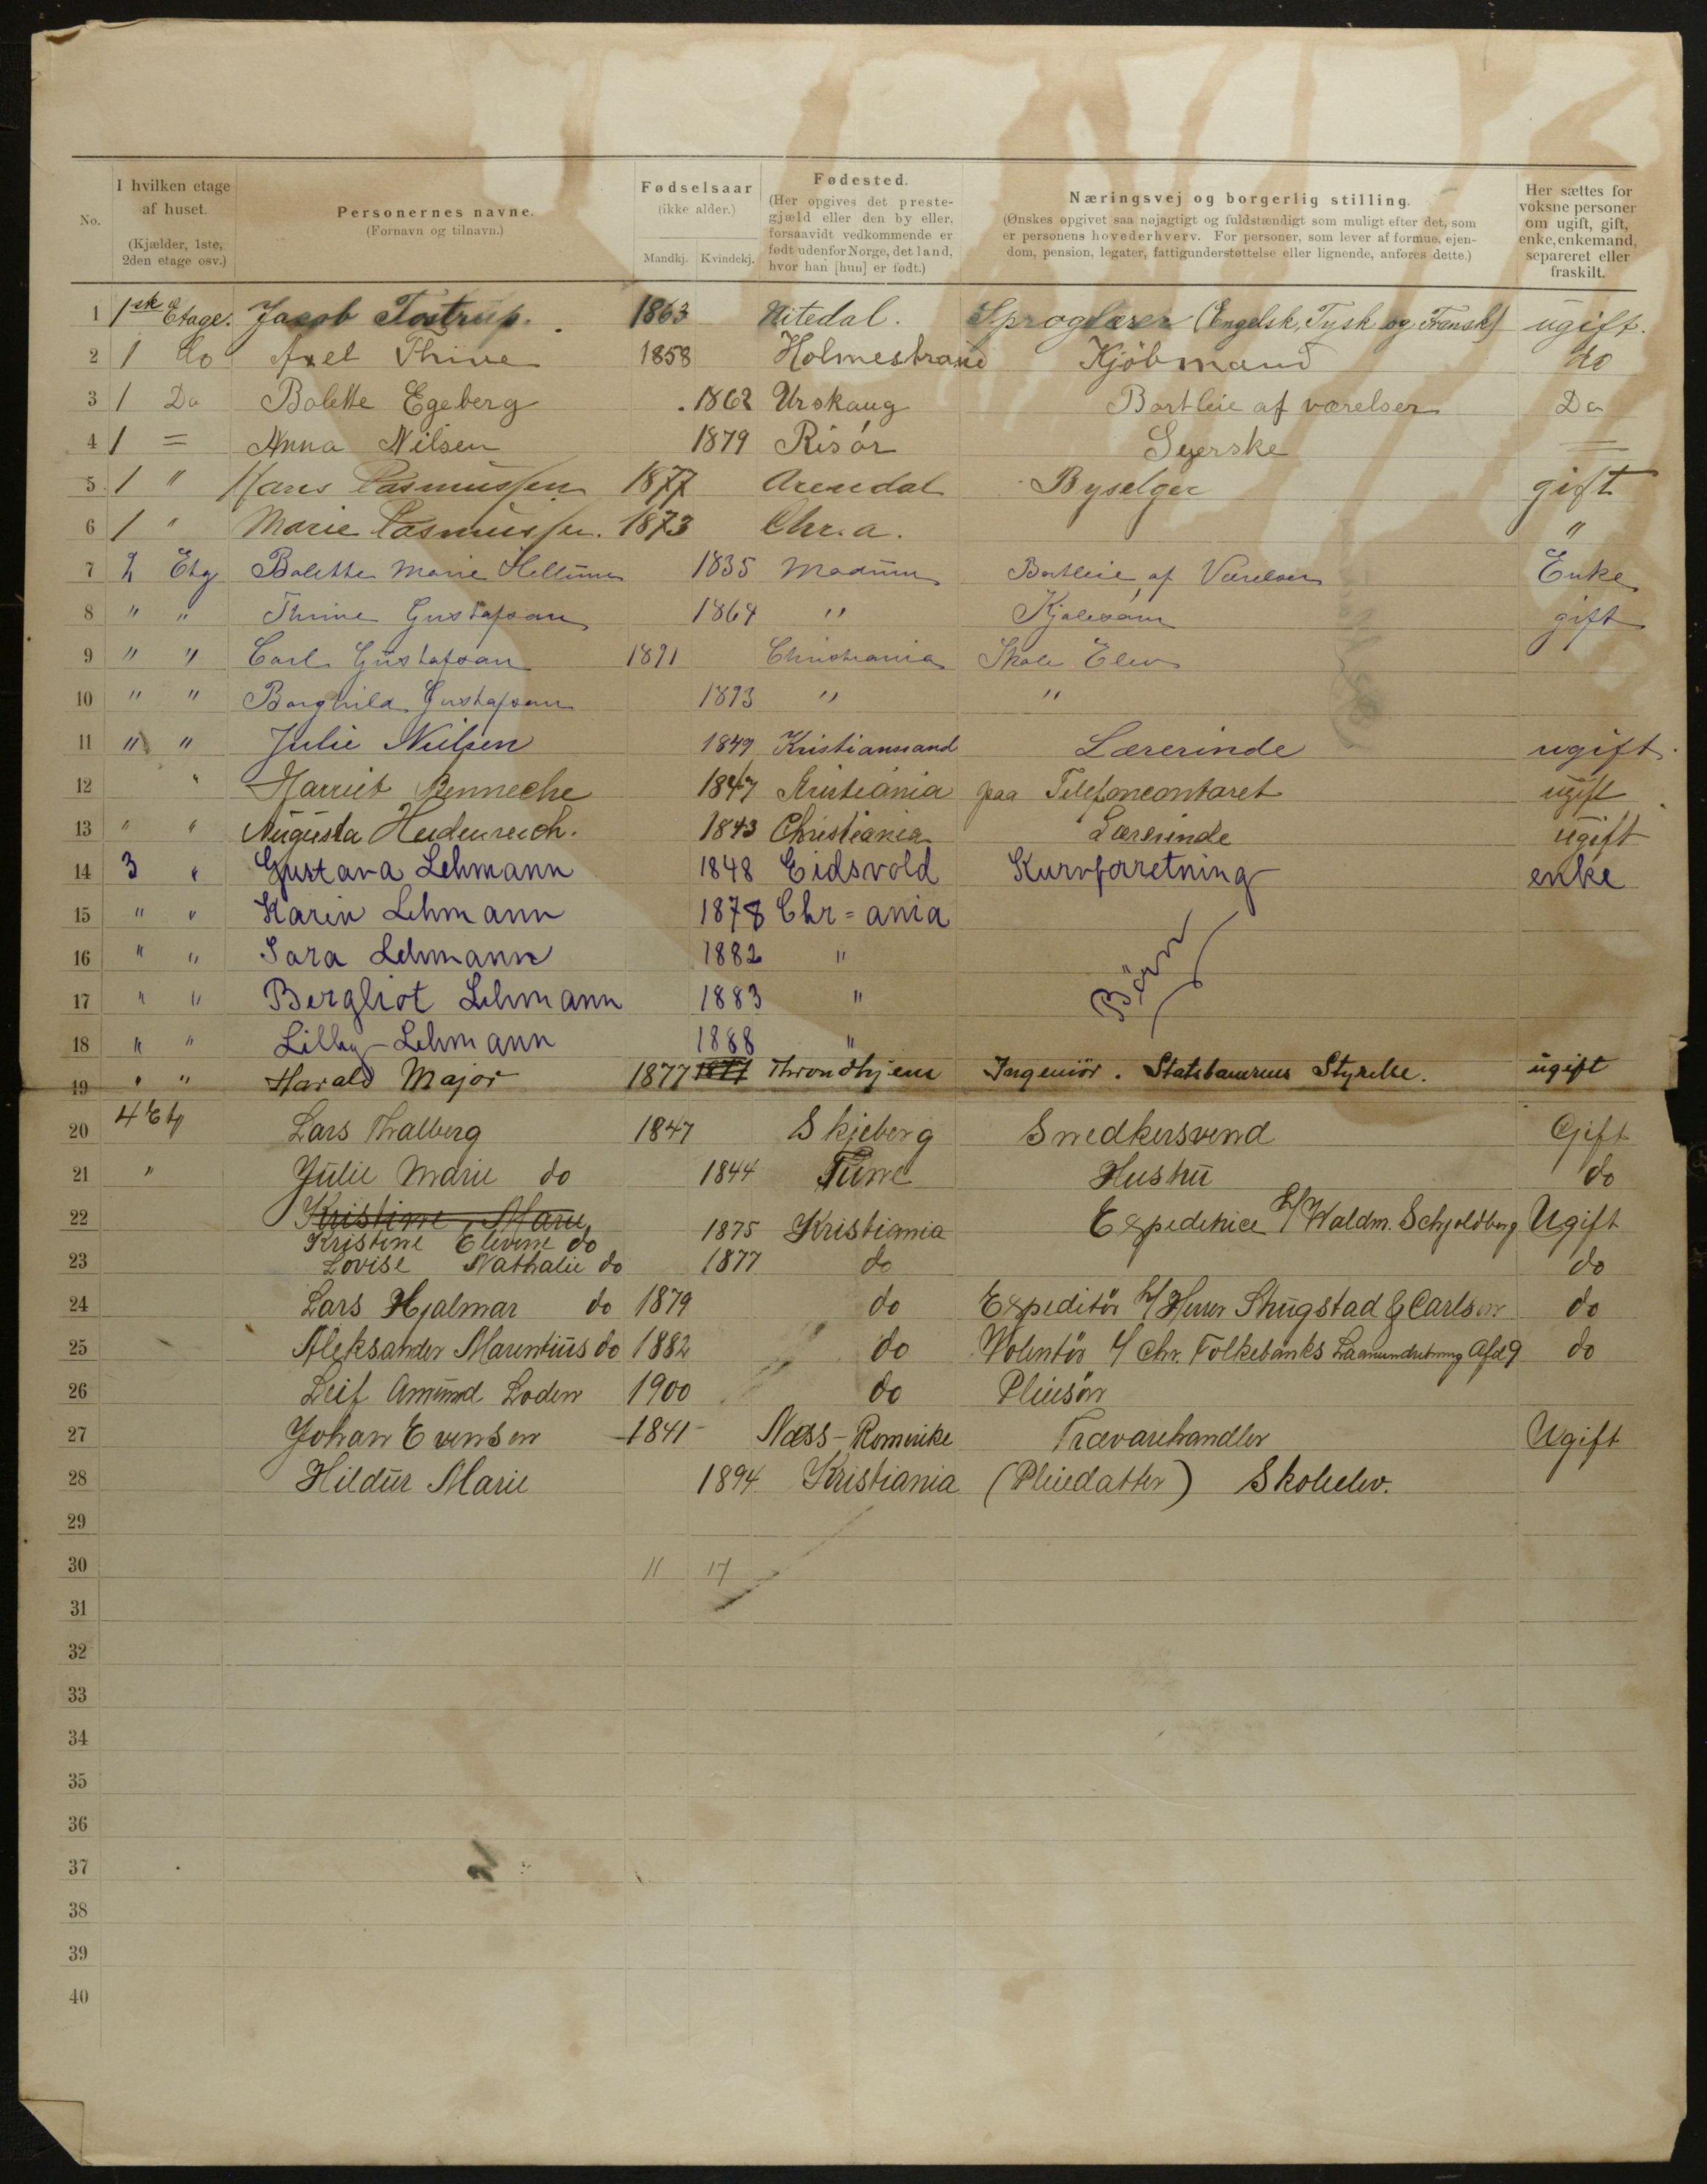 No.
I hvilken etage af huset. (Kjælder, 1ste, 2den etage osv.)
Personernes navne. (Fornavn og tilnavn.)
Fødselsaar (ikke alder.) Mandkj. Kvindekj.
Fødested. (Her opgives det prestegjæld eller den by eller, forsaavidt vedkommende er født udenfor Norge, det land, hvor han [hun] er født.)
Næringsvej og borgerlig stilling. (Ønskes opgivet saa nøjagtigt og fuldstændigt som muligt efter det, som er personens hovederhverv. For personer, som lever af formue, ejendom, pension, legater, fattigunderstøttelse eller lignende, anføres dette.)
Her sættes for voksne personer om ugift, gift, enke, enkemand, separeret eller fraskilt.
1 1ste Etage. Jacob Tostrup. 1863 Nitedal. Sproglærer (Engelsk, Tysk og Fransk) ugift.
2 1 do Axel Thrine 1858 Holmestrand Kjöbmand do
3 1 Do Bolette Egeberg 1862 Urskaug Bortleie af værelser Do
4 1 = Anna Nilsen 1879 Risör Syerske =
5 1 " Hans Rasmussen 1877 Arendal Byselger gift
6 1 " Marie Rasmussen. 1873 Chr.a. "
7 2 Etg Bolette Marie Hellum 1835 Modum Bortleie af Værelser Enke
8 " " Thrine Gustafson 1864 " Kjolesöm gift
9 " " Carl Gustafson 1891 Christiania Skole Elev
10 " " Borghild Gustafson 1893 " "
11 " " Julie Nielsen 1849 Kristianssand Lærerinde ugift.
12 " Harriet Benneche 1847 Kristiania paa Telefoncontoret ugift
13 " " Augusta Heidenreich. 1843 Christiania Lærerinde ugift
14 3 " Gustava Lehmann 1848 Eidsvold Kurvforretning enke
15 " " Karin Lehmann 1878 Chr=ania
16 " " Sara Lehmann 1882 "
Börn
17 " " Bergliot Lehmann 1883 "
18 " " Lilly Lehmann 1888 "
19 " " Harald Major 1877 1877 Throndhjem Ingeniör. Statsbanernes Styrelse. ugift
20 4 Etg Lars Thalberg 1847 Skjeberg Snedkersvend Gift
21 " Julie Marie do 1844 Tune Hustru do
22 Kristine Marie
Kristine Elevine do 1875 Kristiania Expeditrice h/ Waldm. Schjoldborg Ugift
23 Lovise Nathalie do 1877 do do
24 Lars Hjalmar do 1879 do Expeditör h/ Herrer Skugstad & Carlsen do
25 Aleksander Marentius do 1882 do Volentör i/ Chr. Folkebanks Laanindretning Afdg do
26 Leif Amund Loden 1900 do Pleiesön
27 Johan Evensen 1841 Næss-Romerike Trævarehandler Ugift
28 Hildur Marie 1894 Kristiania (Pleiedatter) Skoleelev.
29
30 11 17
31
32
33
34
35
36
37
38
39
40